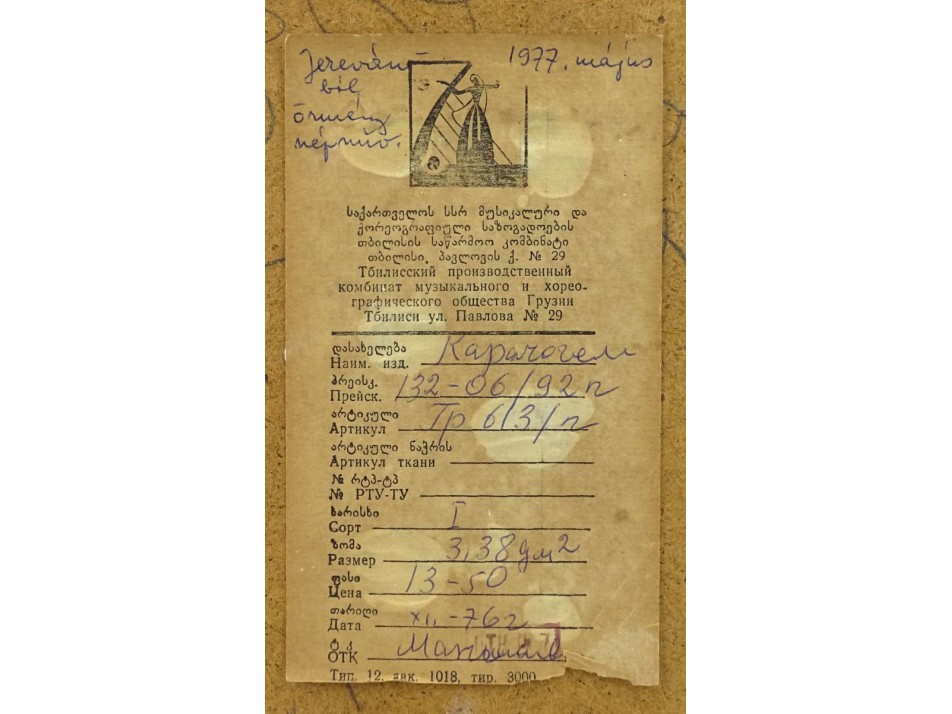 Jereván- 1977. május
ból
örmény
népműv.
საქართველოს სსრ მუსიკალური და
ქორეოგრაფიული საზოგადოების
თბილისის საწარმოო კომბინატი
თბილისი, პავლოვის ქ. № 29
Тбилисский производственный
комбинат музыкального и хорео-
графического общества Грузии
Тбилиси ул. Павлова № 29
დასახელება
Наим. изд. Карачогели
პრეისკ.
Прейск. 132-06/92 п
არტიკული
Артикул Гр 613/п
არტიკული ნაჭრის
Артикул ткани
№ რტპ-ტპ
№ РТУ-ТУ
ხარისხი
Сорт I
ზომა
Размер 3,38 дм2
ფასი
Цена 13-50
თარიღი
Дата XI.-76 г
ОТК
Тип. 12, зак. 1018, тир. 3000